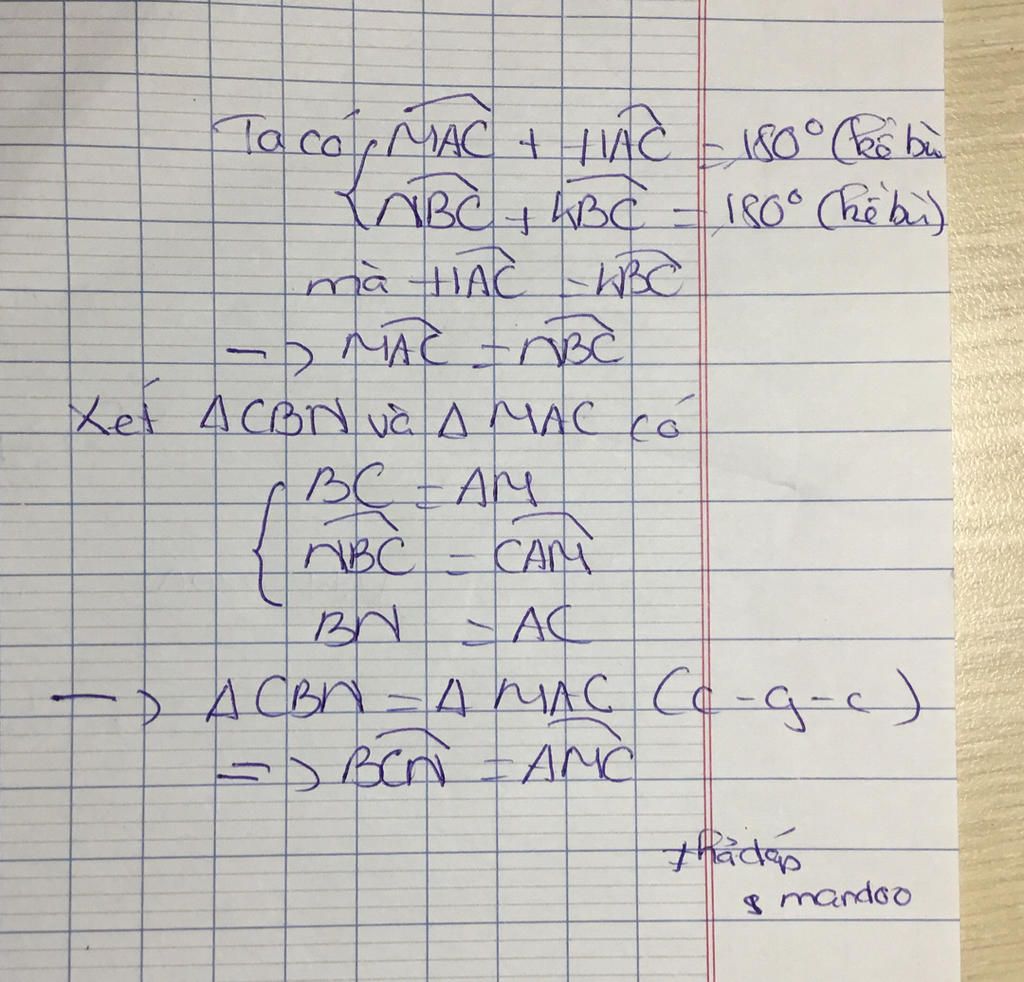 Ta có { MAC + HAC = 180° (kề bù
NBC + KBC = 180° (kề bù)
mà HAC = KBC
-> MAC = NBC
Xét ΔCBN và Δ MAC có
{ BC = AM
NBC = CAM
BN = AC
-> ΔCBN = Δ MAC (c-g-c)
=> BCN = AMC
mandoo